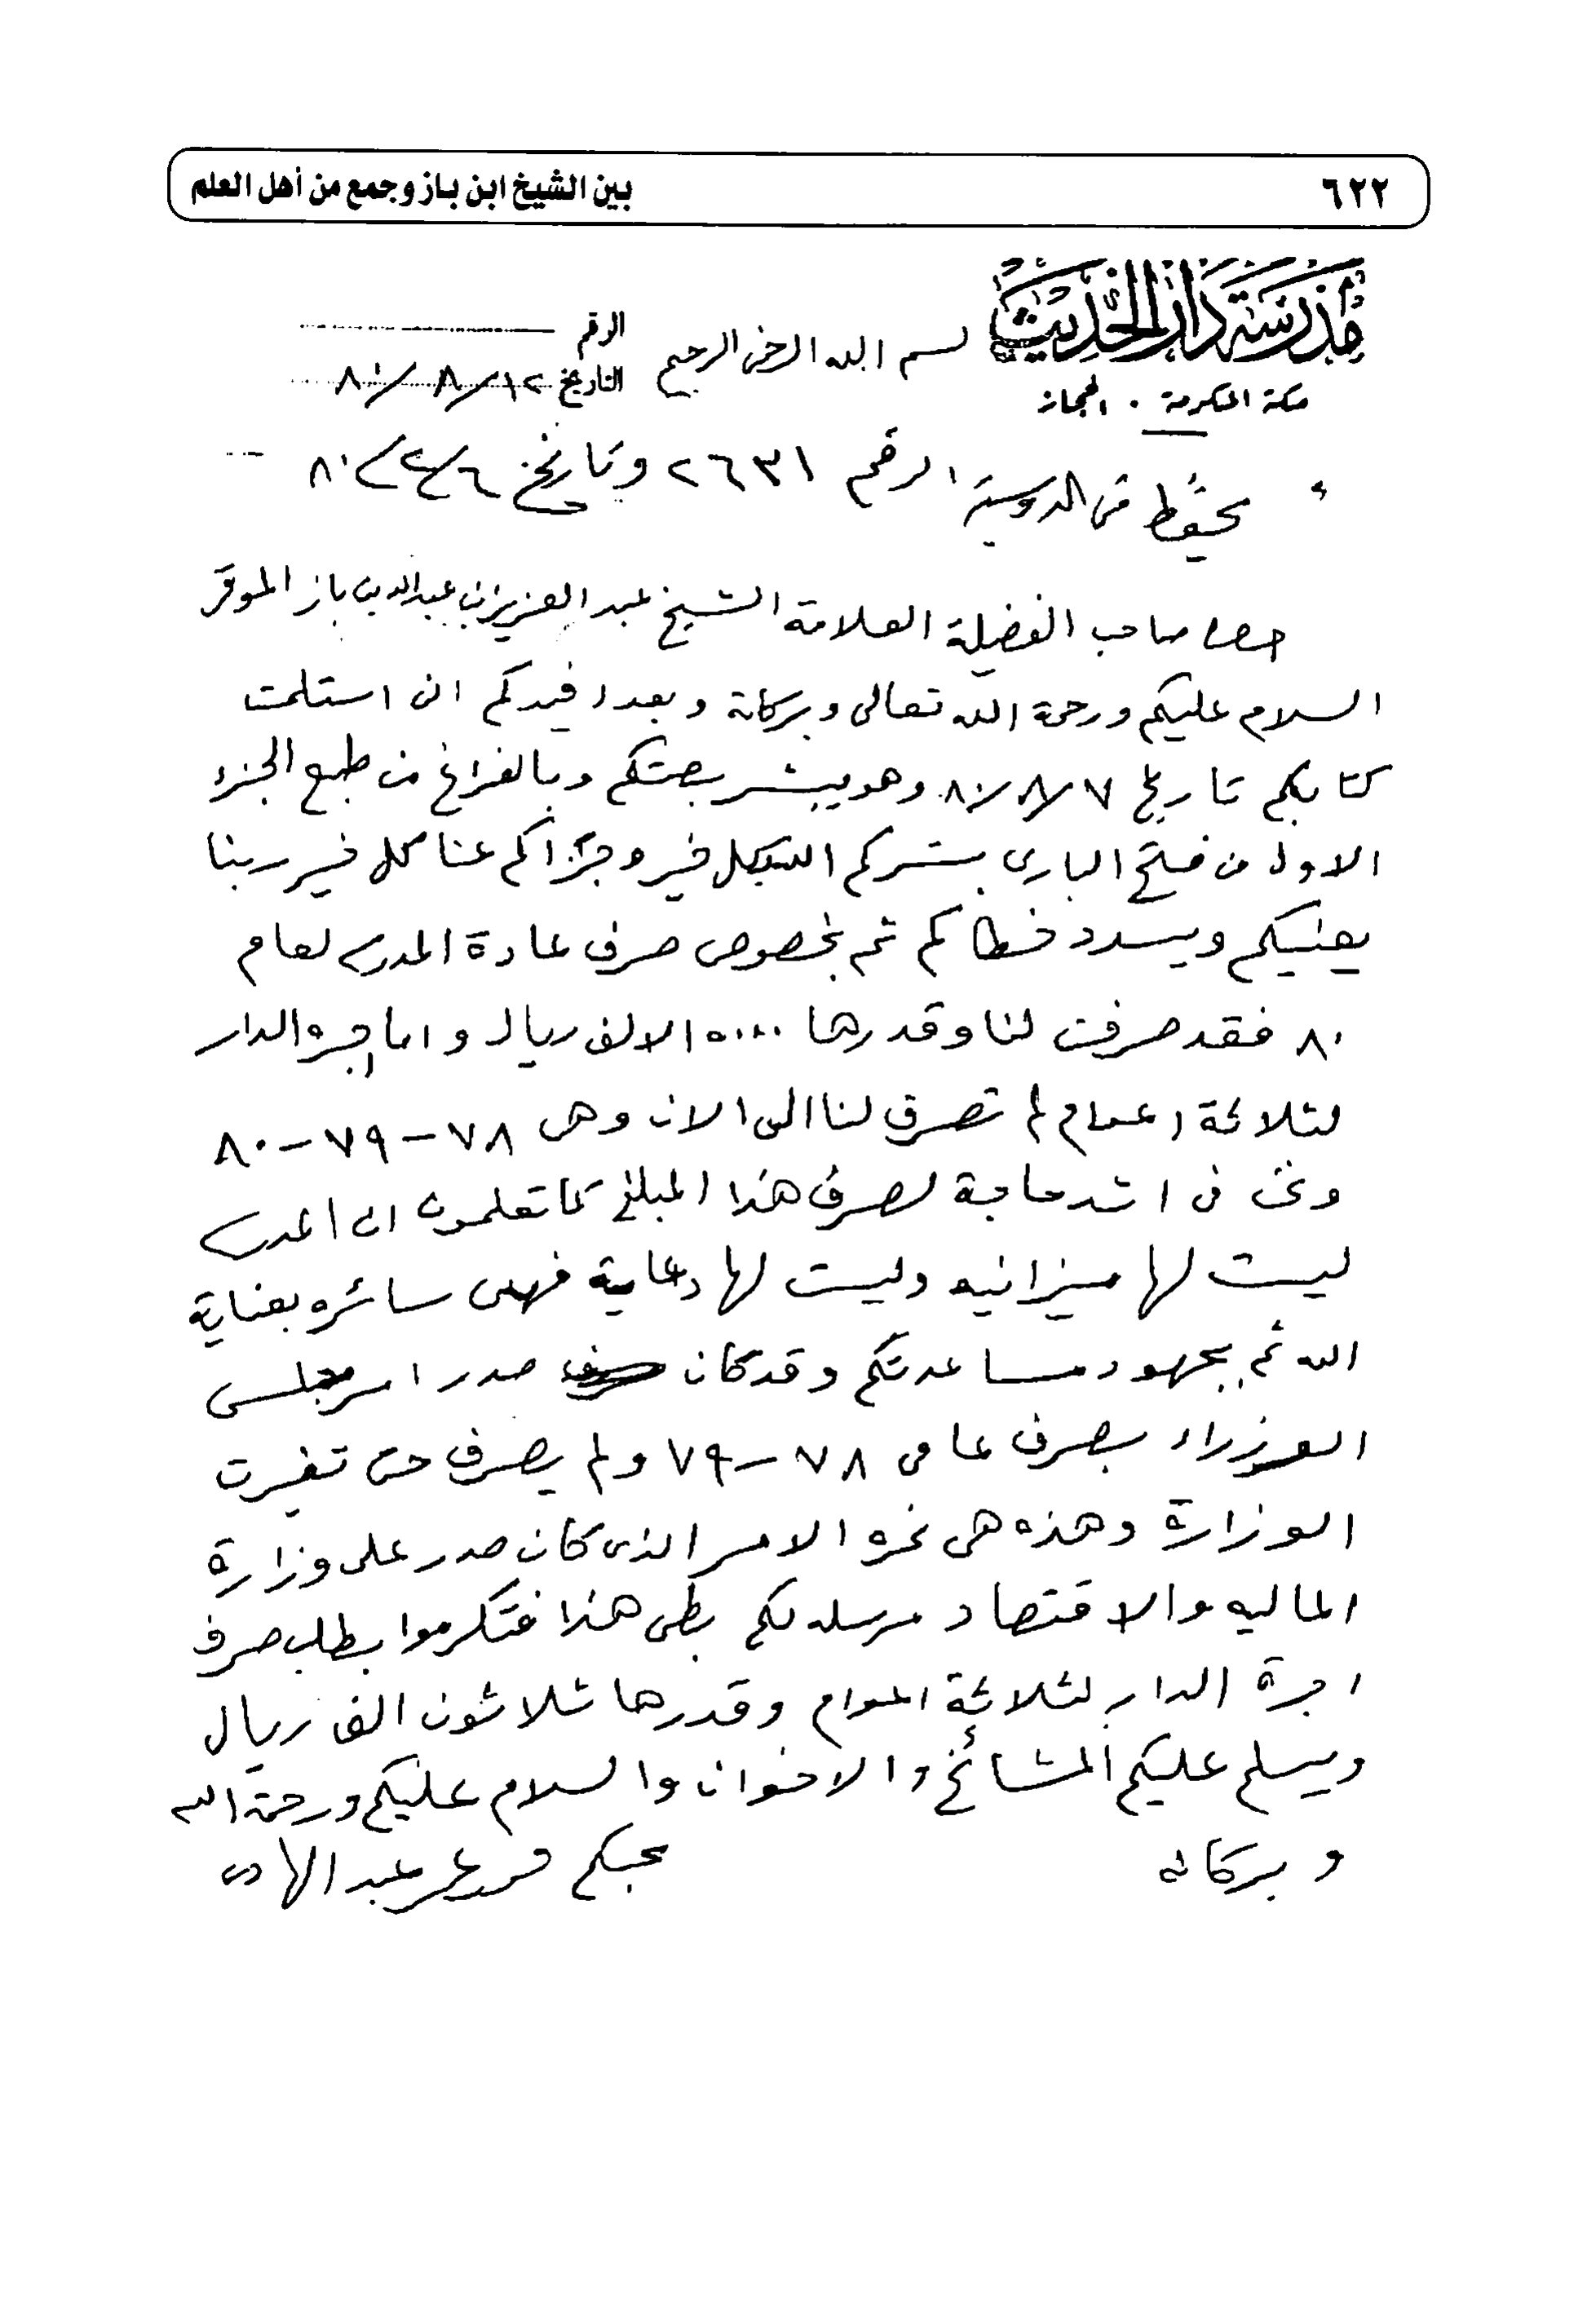 ٦٢٢
بين الشيخ ابن باز وجمع من أهل العلم
مدرسة دار الحديث
مكة المكرمة . الحجاز
بسم الله الرحمن الرحيم
الرقم
التاريخ ١٢/ ٨/ ٨٠
يحفظ في الدوسية الرقم ٢٦٣١ وتاريخ ٢/٦/ ٨٠
صاحب الفضيلة العلامة الشيخ عبد العزيز بن عبدالله بن باز الموقر
السلام عليكم ورحمة الله تعالى وبركاته وبعد افيدكم انى استلمت
كتابكم تاريخ ٨٠/٨/٧ وهو يبشر بصحتكم وبالفراغ من طبع الجزء
الاول من فتح البارى بشركم الله بكل خير وجزاكم عنا كل خير ربنا
يعنيكم ويسدد خطاكم ثم بخصوص صرف عادة المدرسه لعام
٨٠ فقد صرفت لنا وقدرها ٥٠٠٠ الالف ريال واما اجره الدار
لثلاثة اعوام لم تصرف لنا الى الان وهى ٧٨ - ٧٩ - ٨٠
ونحن فى اشد حاجة لصرف هذا المبلغ كما تعلمون ان المدرسه
ليست لها ميزانيه وليست لها دعاية فهى سائره بعناية
الله ثم بجهود مساعدتكم وقد كان صدر امر مجلس
الوزراء بصرف عامى ٧٨ - ٧٩ ولم يصرف حتى تغيرت
الوزارة وهذه هى نمره الامر الذى كان صدر على وزارة
الماليه والاقتصاد مرسله لكم بطى هذا فتكرموا بطلب صرف
اجرة الدار لثلاثة اعوام وقدرها ثلاثون الف ريال
ويسلم عليكم المشائخ والاخوان والسلام عليكم ورحمة الله
وبركاته
محبكم عمر عبد الهادى